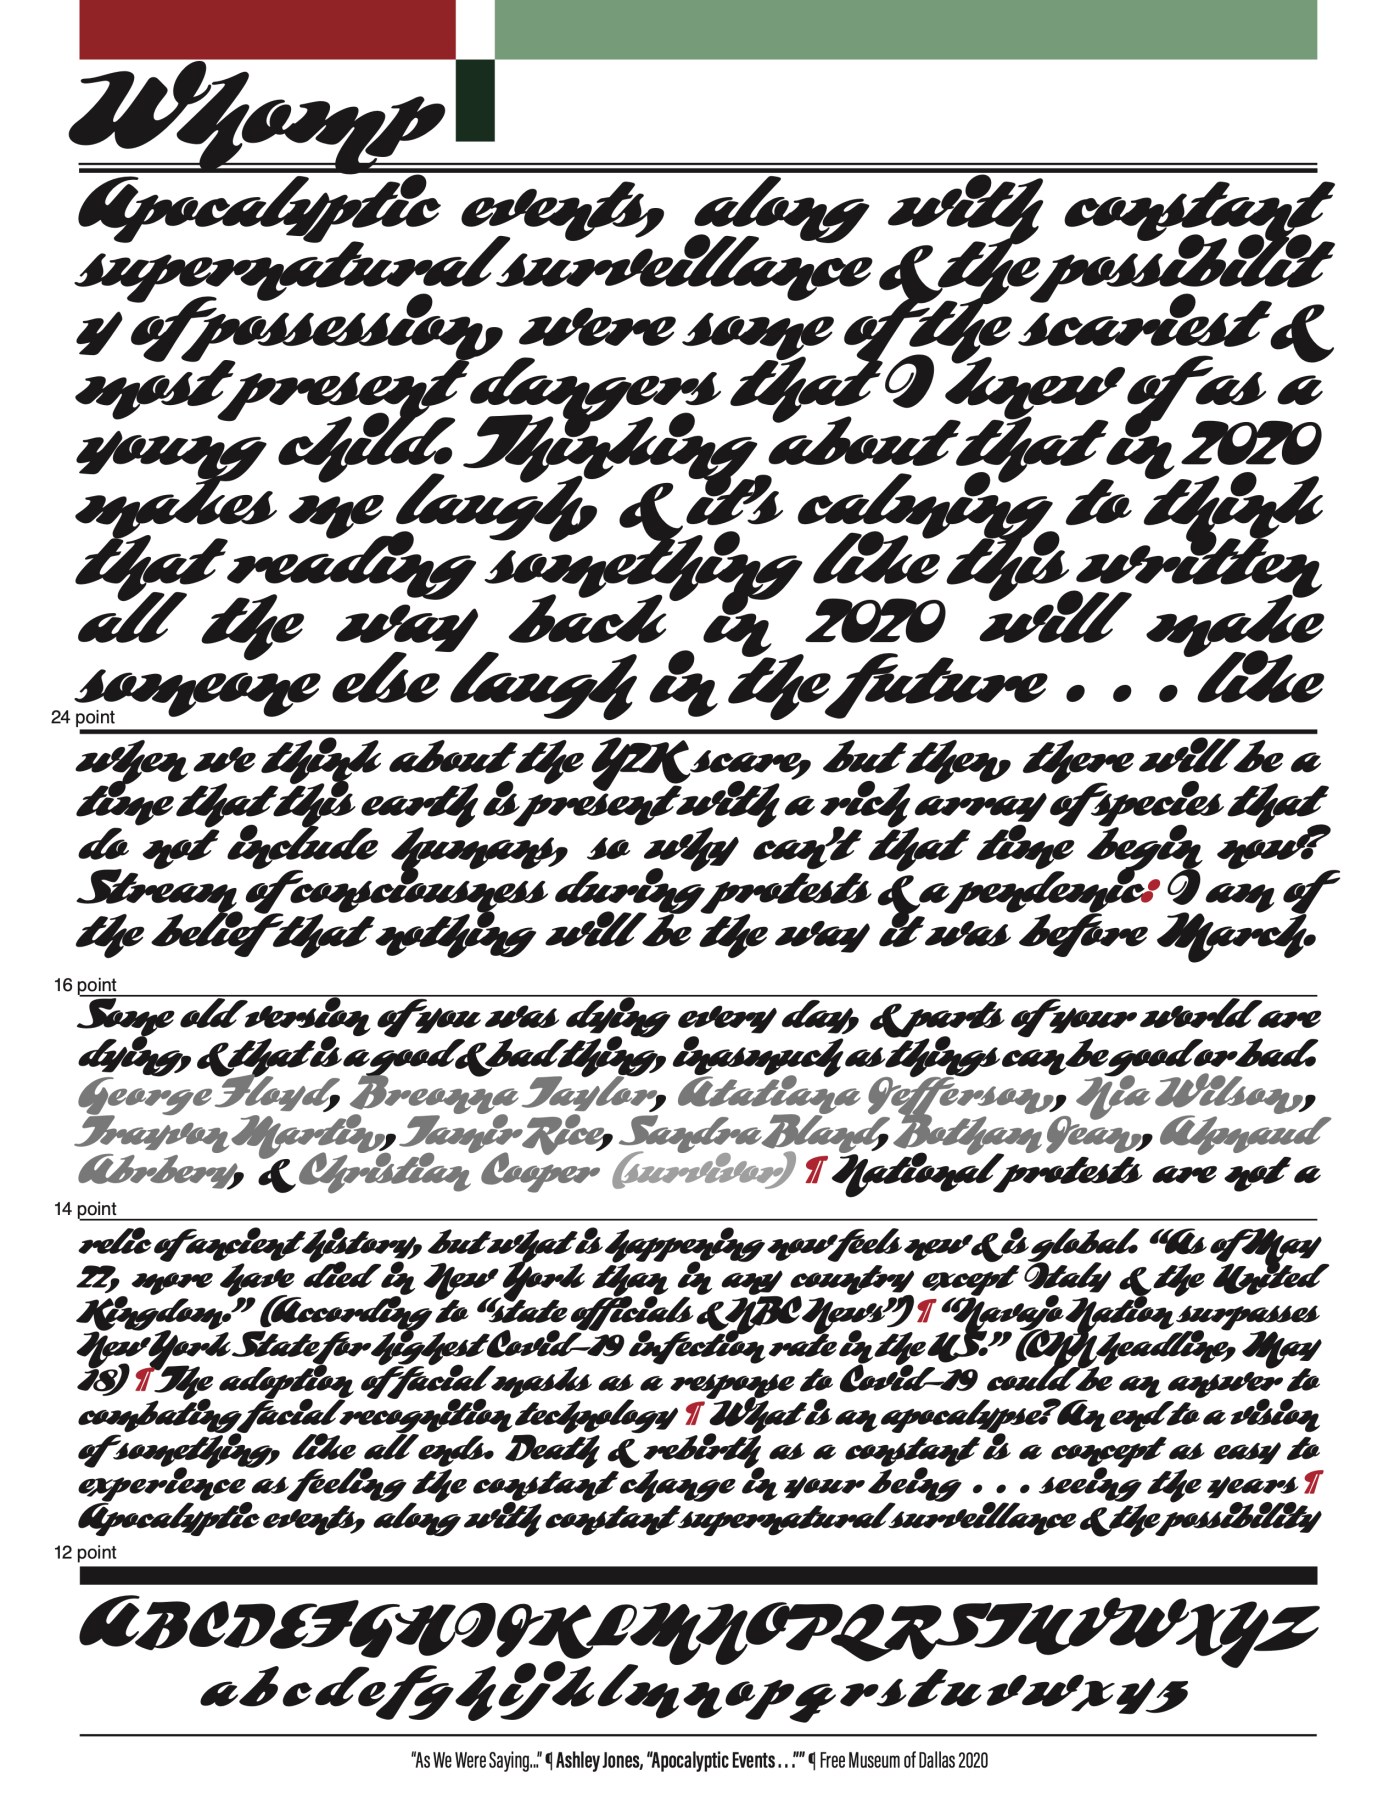 Whomp
Apocalyptic events, along with constant
supernatural surveillance & the possibilit
y of possession, were some of the scariest &
most present dangers that I knew of as a
young child. Thinking about that in 2020
makes me laugh, & it's calming to think
that reading something like this written
all the way back in 2020 will make
someone else laugh in the future . . . like
24 point
when we think about the Y2K scare, but then, there will be a
time that this earth is present with a rich array of species that
do not include humans, so why can't that time begin now?
Stream of consciousness during protests & a pendemic: I am of
the belief that nothing will be the way it was before March.
16 point
Some old version of you was dying every day, & parts of your world are
dying, & that is a good & bad thing, inasmuch as things can be good or bad.
George Floyd, Breonna Taylor, Atatiana Jefferson, Nia Wilson,
Trayvon Martin, Tamir Rice, Sandra Bland, Botham Jean, Ahmaud
Abrbery, & Christian Cooper (survivor) ¶ National protests are not a
14 point
relic of ancient history, but what is happening now feels new & is global. “As of May
22, more have died in New York than in any country except Italy & the United
Kingdom.” (According to “state officials & NBC News”) ¶ “Navajo Nation surpasses
New York State for highest Covid–19 infection rate in the US.” (CNN headline, May
18) ¶ The adoption of facial masks as a response to Covid–19 could be an answer to
combating facial recognition technology ¶ What is an apocalypse? An end to a vision
of something, like all ends. Death & rebirth as a constant is a concept as easy to
experience as feeling the constant change in your being . . . seeing the years ¶
Apocalyptic events, along with constant supernatural surveillance & the possibility
12 point
ABCDEFGHIJKLMNOPQRSTUVWXYZ
abcdefghijklmnopqrstuvwxyz
“As We Were Saying...” ¶ Ashley Jones, “Apocalyptic Events . . .”” ¶ Free Museum of Dallas 2020